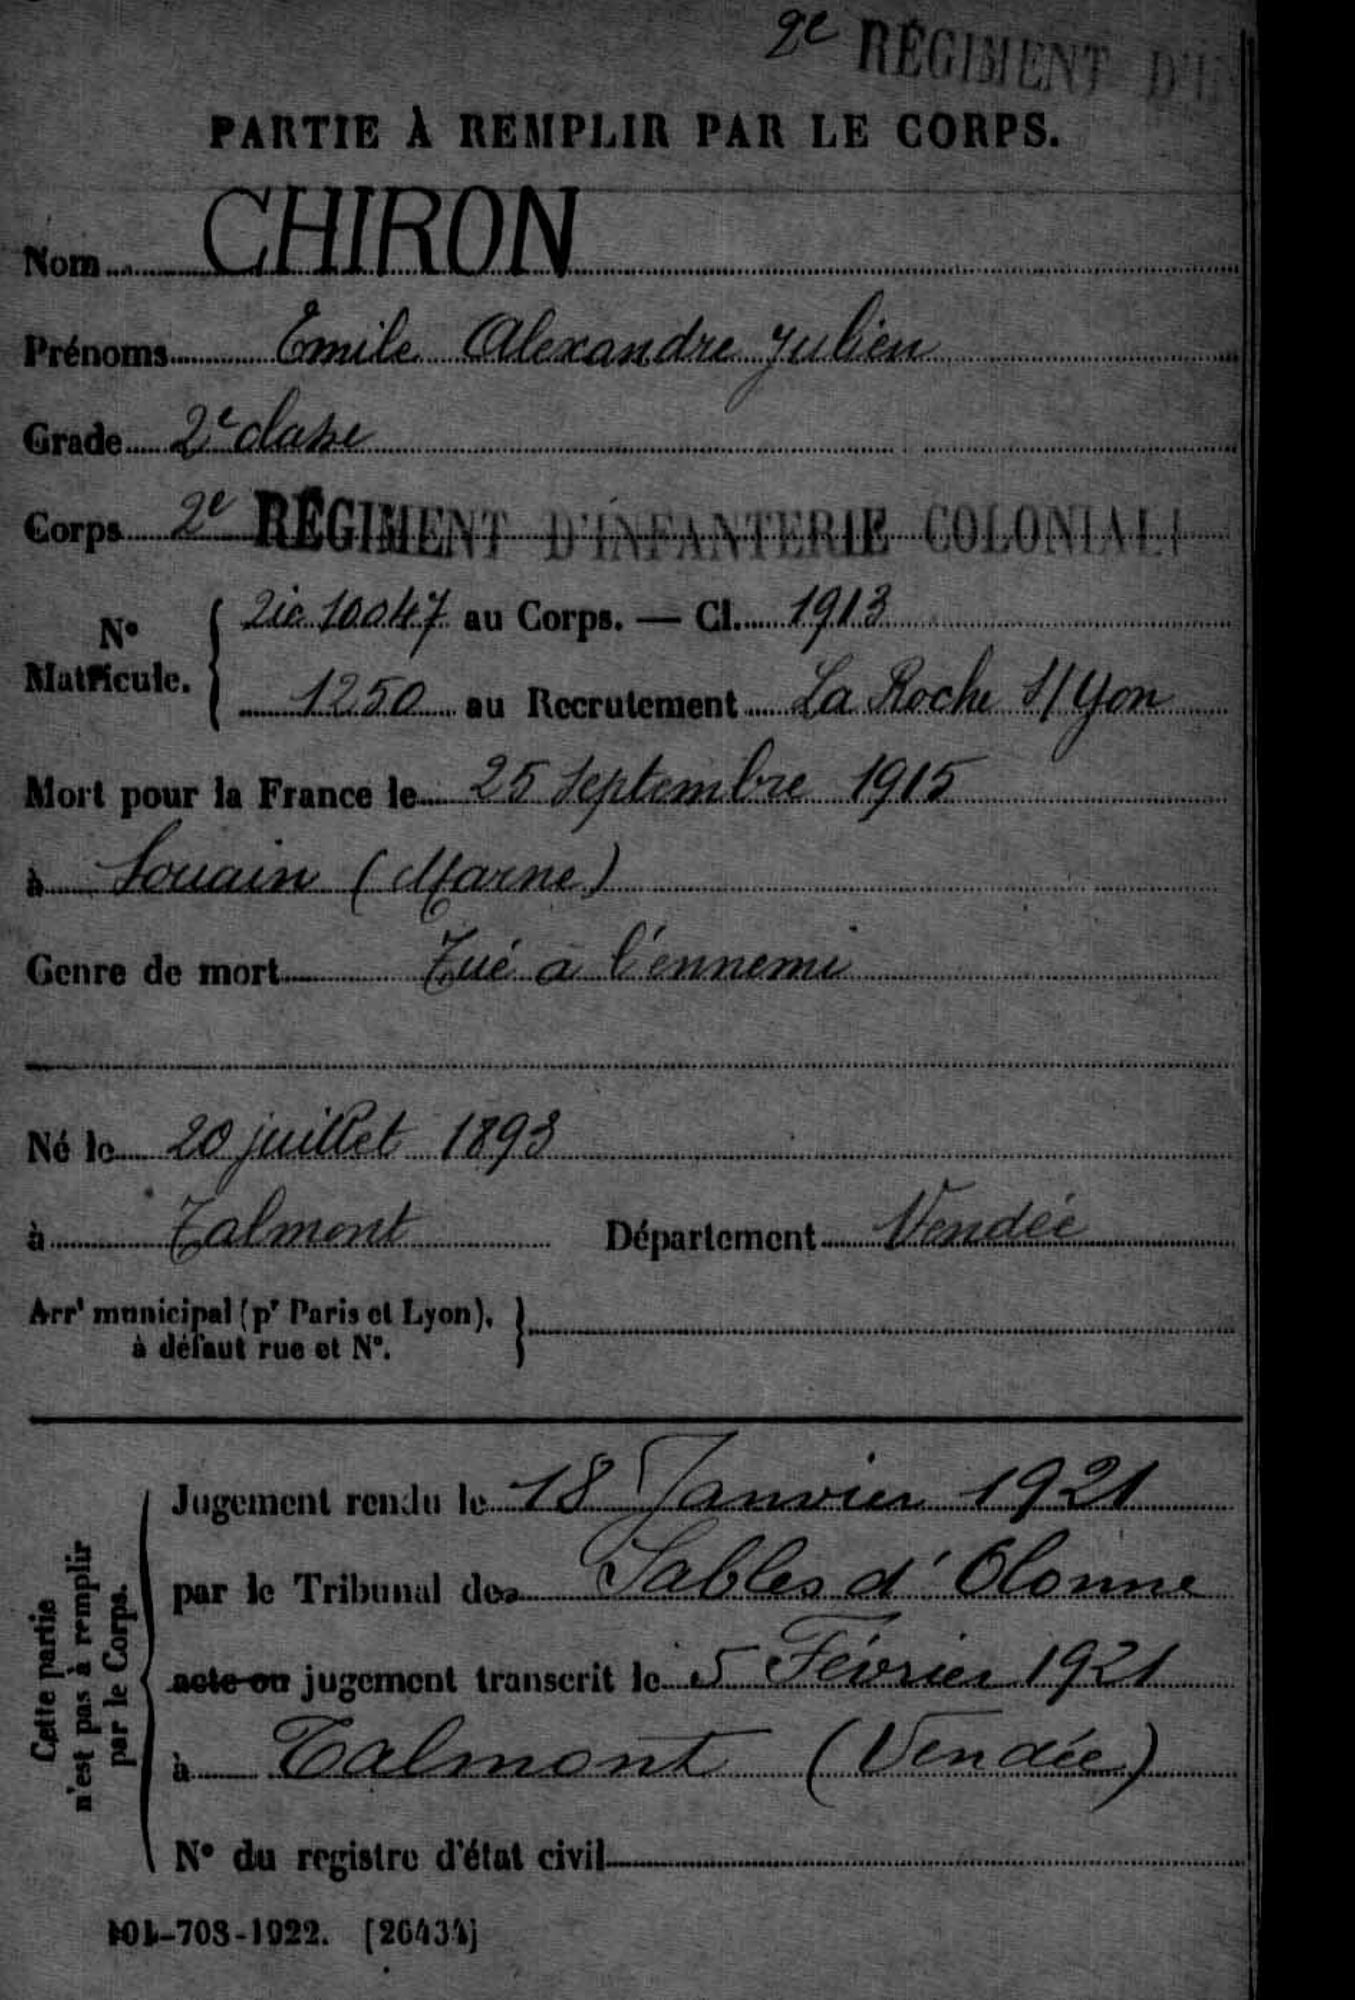 2e RÉGIMENT D'IN
PARTIE À REMPLIR PAR LE CORPS.
Nom CHIRON
Prénoms Emile Alexandre Julien
Grade 2e classe
Corps 2e RÉGIMENT D'INFANTERIE COLONIALE
N° Matricule. { 2ic 10047 au Corps. — Cl. 1913
1250 au Recrutement La Roche S/Yon
Mort pour la France le 25 Septembre 1915
à Souain (Marne)
Genre de mort Tué à l'ennemi
Né le 20 juillet 1893
à Talmont Département Vendée
Arrt municipal (pr Paris et Lyon), }
à défaut rue et N°.
Cette partie
n'est pas à remplir
par le Corps.
Jugement rendu le 18 Janvier 1921
par le Tribunal des Sables d'Olonne
acte ou jugement transcrit le 5 Février 1921
à Talmont (Vendée)
N° du registre d'état civil
101-708-1922. [26434]